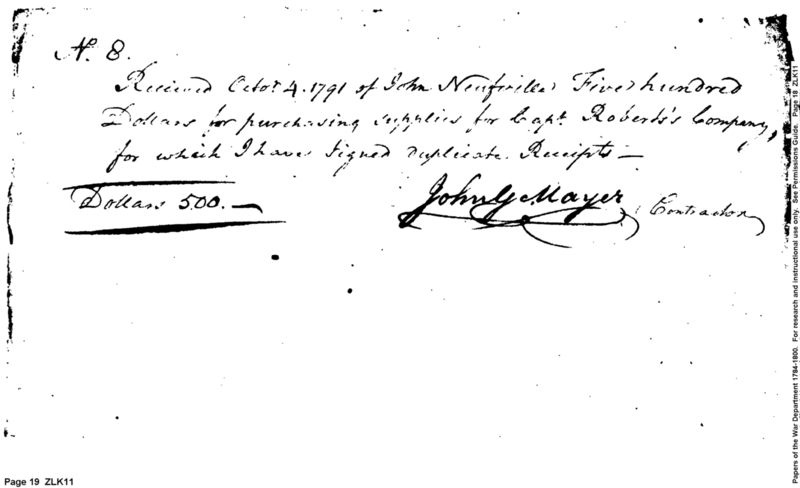 No. 8.
Received Octor. 4. 1791 of John Neufville Five hundred
Dollars for purchasing supplies for Capt. Roberts's Company,
for which I have signed duplicate Receipts —
Dollars 500. —
John G Mayer Contractor
Page 19 ZLK11
Papers of the War Department 1784-1800. For research and instructional use only. See Permissions Guide. Page 19 ZLK11